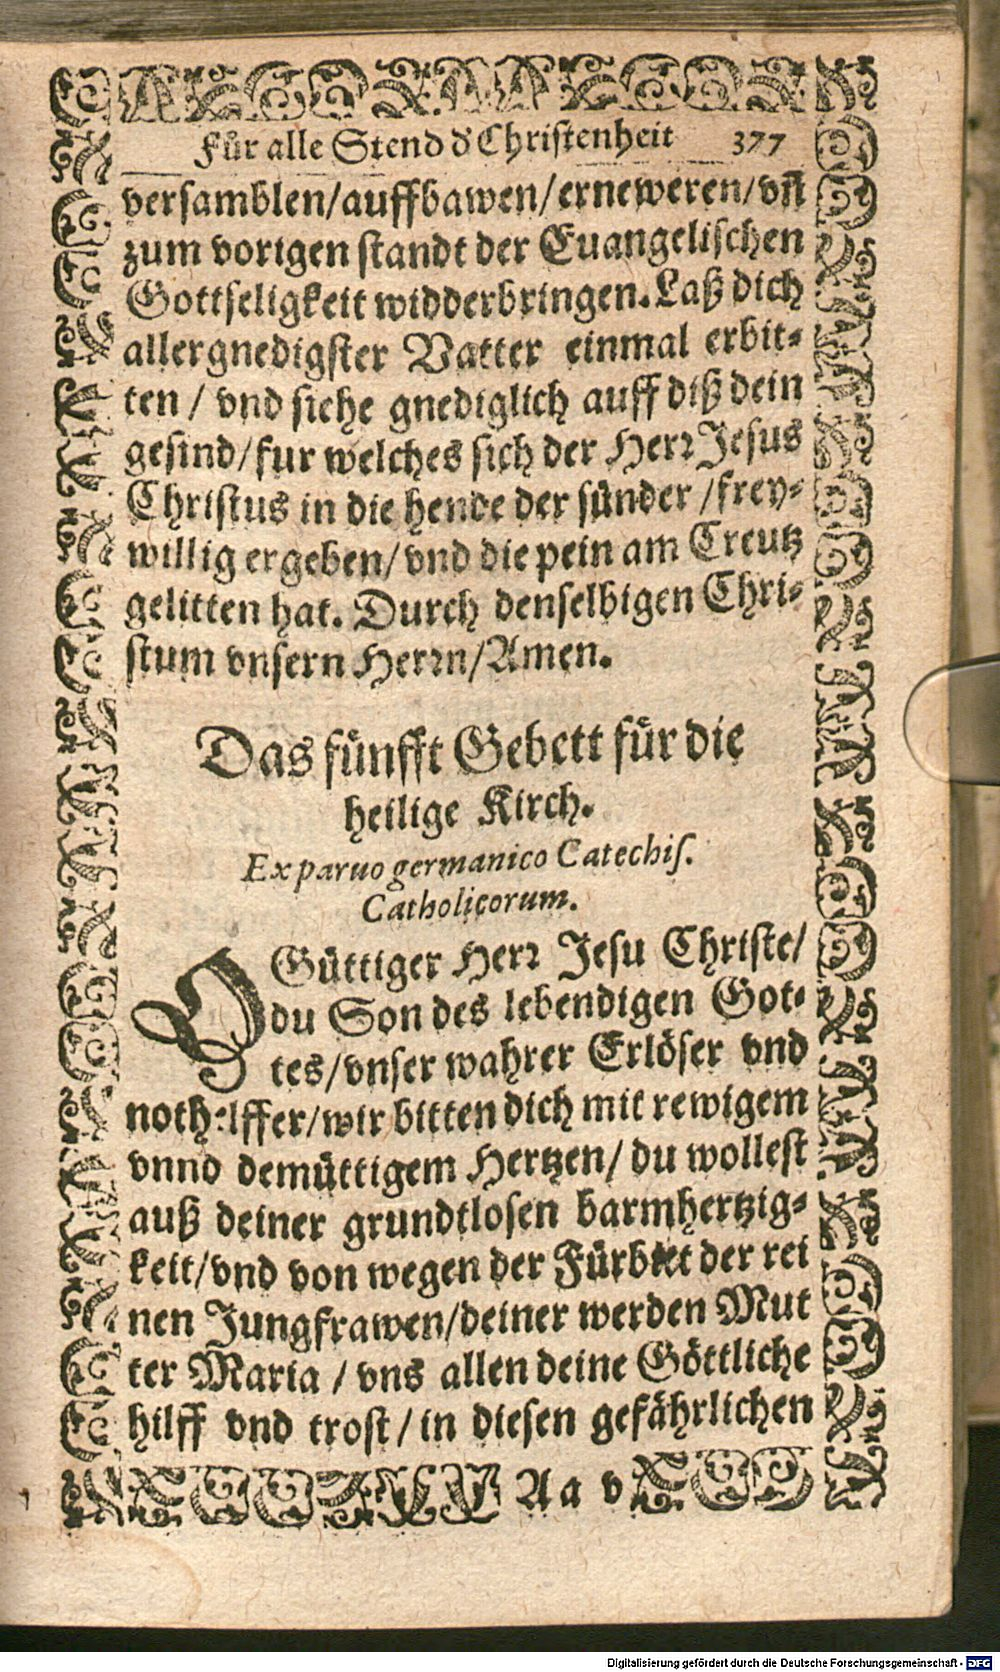 Für alle Stend d' Christenheit 377
versamblen/auffbawen/erneweren/vñ
zum vorigen standt der Euangelischen
Gottseligkeit widderbringen. Laß dich
allergnedigster Vatter einmal erbit-
ten / vnd siehe gnediglich auff diß dein
gesind/fur welches sich der Herr Jesus
Christus in die hende der sünder /frey-
willig ergeben/vnd die pein am Creutz
gelitten hat. Durch denselbigen Chri-
stum vnsern Herrn/Amen.
Das fünfft Gebett für die
heilige Kirch.
Ex paruo germanico Catechis.
Catholicorum.
O Güttiger Herr Jesu Christe/
du Son des lebendigen Got-
tes/vnser wahrer Erlöser vnd
nothelffer/wir bitten dich mit rewigem
vnnd demüttigem Hertzen/ du wollest
auß deiner grundtlosen barmhertzig-
keit/vnd von wegen der Fürbitt der rei
nen Jungfrawen/deiner werden Mut
ter Maria / vns allen deine Göttliche
hilff vnd trost/in diesen gefährlichen
Aa v
Digitalisierung gefördert durch die Deutsche Forschungsgemeinschaft - DFG